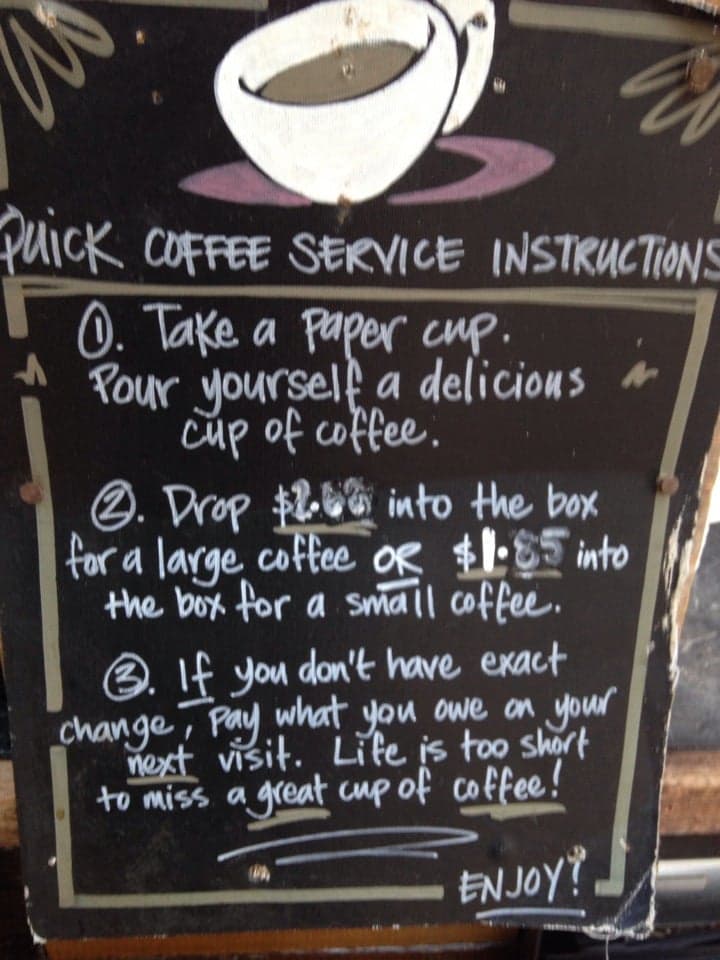 QUICK COFFEE SERVICE INSTRUCTIONS
1. Take a paper cup.
Pour yourself a delicious
cup of coffee.
2. Drop into the box
for a large coffee OR $1.85 into
the box for a small coffee.
3. If you don't have exact
change, pay what you owe on your
next visit. Life is too short
to miss a great cup of coffee!
ENJOY!